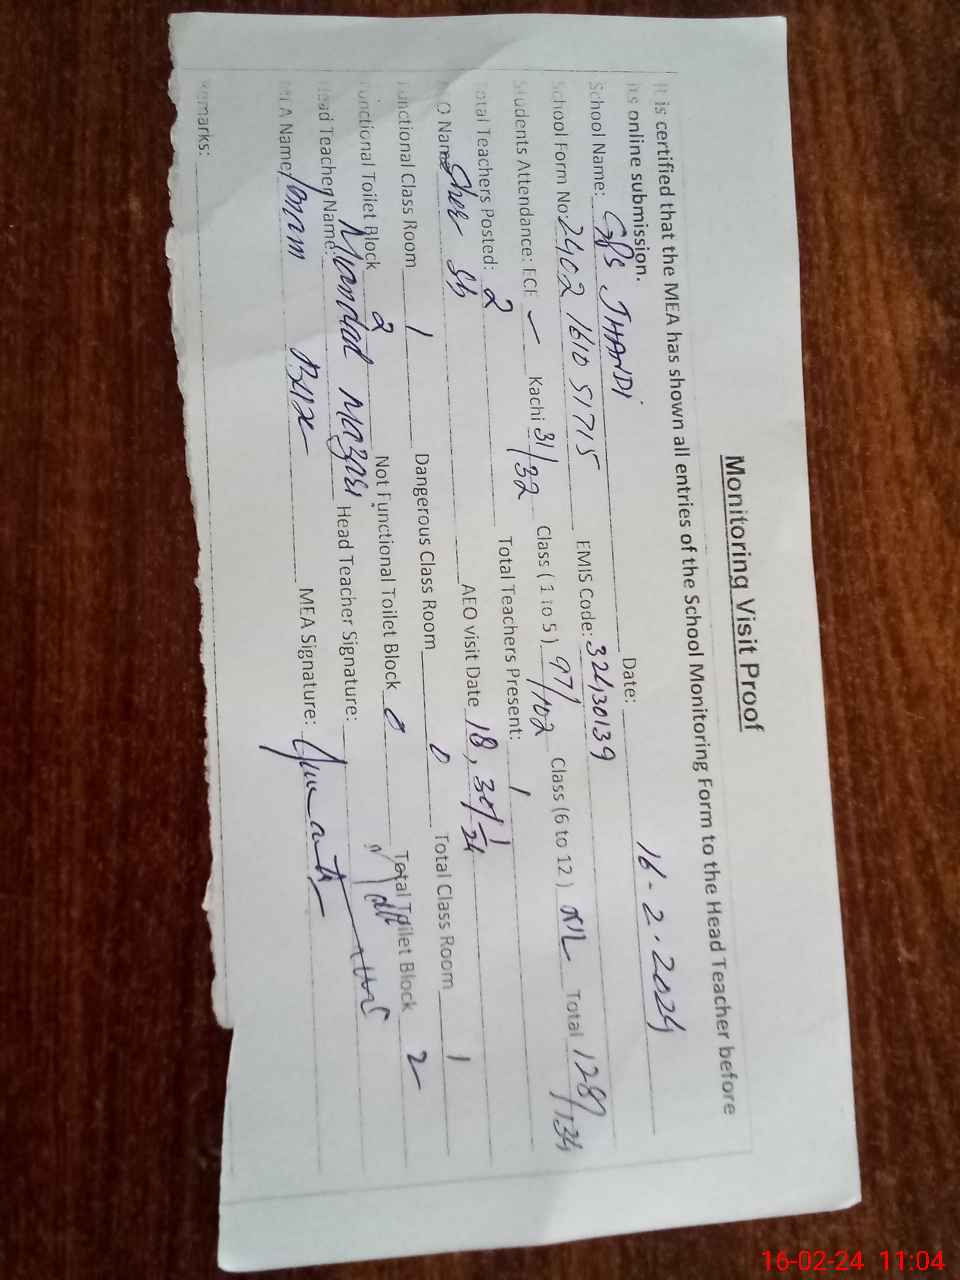 Monitoring Visit Proof
It is certified that the MEA has shown all entries of the School Monitoring Form to the Head Teacher before
its online submission. Date: 16-2-2024
School Name: GPS JHANDI
School Form No: 2402 1610 51715 EMIS Code: 32430139
Students Attendance: ECE Kachi 31/32 Class (1 to 5) 97/102 Class (6 to 12) NIL Total 128/134
Total Teachers Posted: 2 Total Teachers Present: 1
O Name Sher Sh AEO visit Date 18, 30/1/24
Functional Class Room 1 Dangerous Class Room 0 Total Class Room 1
Functional Toilet Block 2 Not Functional Toilet Block 0 Total Toilet Block 2
Head Teacher Name: Miandad Mazari Head Teacher Signature:
MEA Name Imam Bux MEA Signature:
Remarks:
16-02-24 11:04